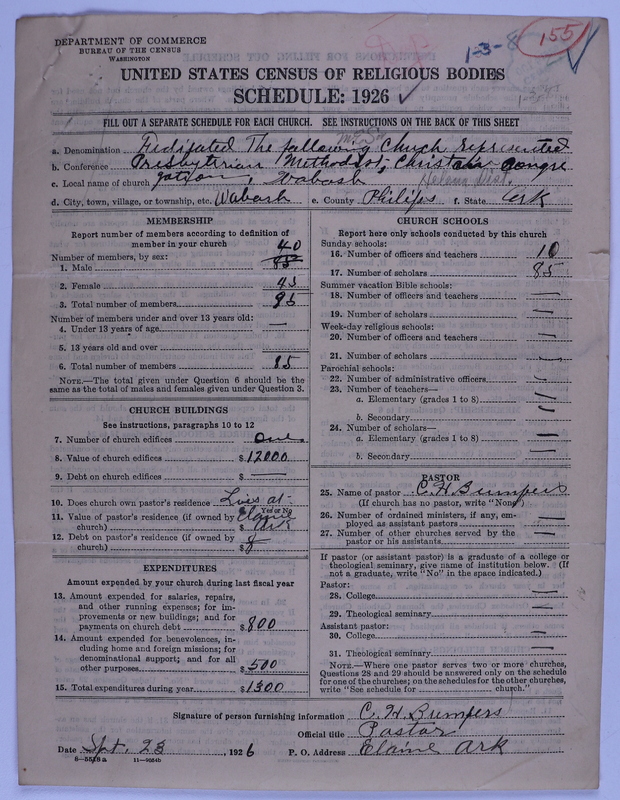 DEPARTMENT OF COMMERCE
BUREAU OF THE CENSUS
WASHINGTON
1-3-8
155
UNITED STATES CENSUS OF RELIGIOUS BODIES
SCHEDULE: 1926
FILL OUT A SEPARATE SCHEDULE FOR EACH CHURCH. SEE INSTRUCTIONS ON THE BACK OF THIS SHEET
a. Denomination Fedirated The following Church represented
b. Conference Presbyterian, Methodist, Christian Congre
c. Local name of church gation, Wabash Helena Dist.
d. City, town, village, or township, etc. Wabash e. County Philips f. State Ark
MEMBERSHIP
Report number of members according to definition of
member in your church
Number of members, by sex: 40
1. Male 85
2. Female 45
3. Total number of members 85
Number of members under and over 13 years old:
4. Under 13 years of age —
5. 13 years old and over
6. Total number of members 85
NOTE.—The total given under Question 6 should be the
same as the total of males and females given under Question 3.
CHURCH BUILDINGS
See instructions, paragraphs 10 to 12
7. Number of church edifices One
8. Value of church edifices $12000
9. Debt on church edifices $ —
10. Does church own pastor's residence Lives at
Yes or No
11. Value of pastor's residence (if owned by Elaine
church) $ Ark
12. Debt on pastor's residence (if owned by
church) $
EXPENDITURES
Amount expended by your church during last fiscal year
13. Amount expended for salaries, repairs,
and other running expenses; for im-
provements or new buildings; and for
payments on church debt $800
14. Amount expended for benevolences, in-
cluding home and foreign missions; for
denominational support; and for all
other purposes $500
15. Total expenditures during year $1300
CHURCH SCHOOLS
Report here only schools conducted by this church
Sunday schools:
16. Number of officers and teachers 10
17. Number of scholars 85
Summer vacation Bible schools:
18. Number of officers and teachers —
19. Number of scholars —
Week-day religious schools:
20. Number of officers and teachers —
21. Number of scholars —
Parochial schools:
22. Number of administrative officers —
23. Number of teachers—
a. Elementary (grades 1 to 8) —
b. Secondary —
24. Number of scholars—
a. Elementary (grades 1 to 8) —
b. Secondary —
PASTOR
25. Name of pastor C. H. Bumpers
(If church has no pastor, write "None")
26. Number of ordained ministers, if any, em-
ployed as assistant pastors —
27. Number of other churches served by the
pastor or his assistants —
If pastor (or assistant pastor) is a graduate of a college or
theological seminary, give name of institution below. (If
not a graduate, write "No" in the space indicated.)
Pastor:
28. College —
29. Theological seminary —
Assistant pastor:
30. College —
31. Theological seminary —
NOTE.—Where one pastor serves two or more churches,
Questions 28 and 29 should be answered only on the schedule
for one of the churches; on the schedules for the other churches,
write "See schedule for church."
Signature of person furnishing information C. H. Bumpers
Official title Pastor
Date Sept. 28, 1926 P. O. Address Elaine Ark
8—5518a 11—9054b